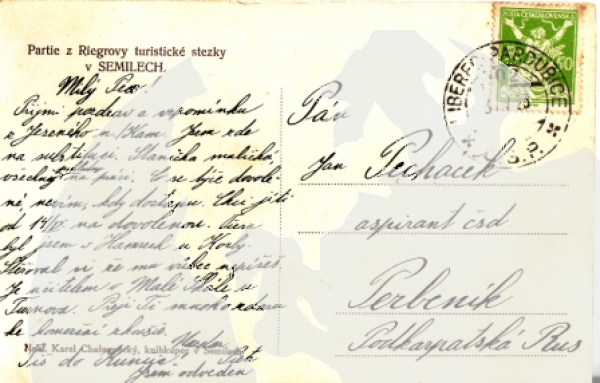 Partie z Riegrovy turistické stezky
v SEMILECH.
Milý Pex!
Přijmi pozdrav a vzpomínku
z Jesenného n/Kam. Jsem zde
na substituci. Stanička maličká,
všechny na práci. Co se týče dovole
né, nevím, kdy dostanu. Chci jíti
od 14/IV. na dovolenou. Včera
byl jsem v Hamrech u
Stěžoval si, že mu vůbec nepíšeš.
Je učitelem v Malé Skále u
Turnova. Přeji Ti mnoho zdaru
ke komerční zkoušce.
Nakl. Karel Chaloupecký, knihkupec v Semilech
Piš do
Jsem odveden
POŠTA ČESKOSLOVENSKÁ
50
LIBEREC-PARDUBICE
Pán
Jan Pecháček
aspirant čsd.
Perbeník
Podkarpatská Rus